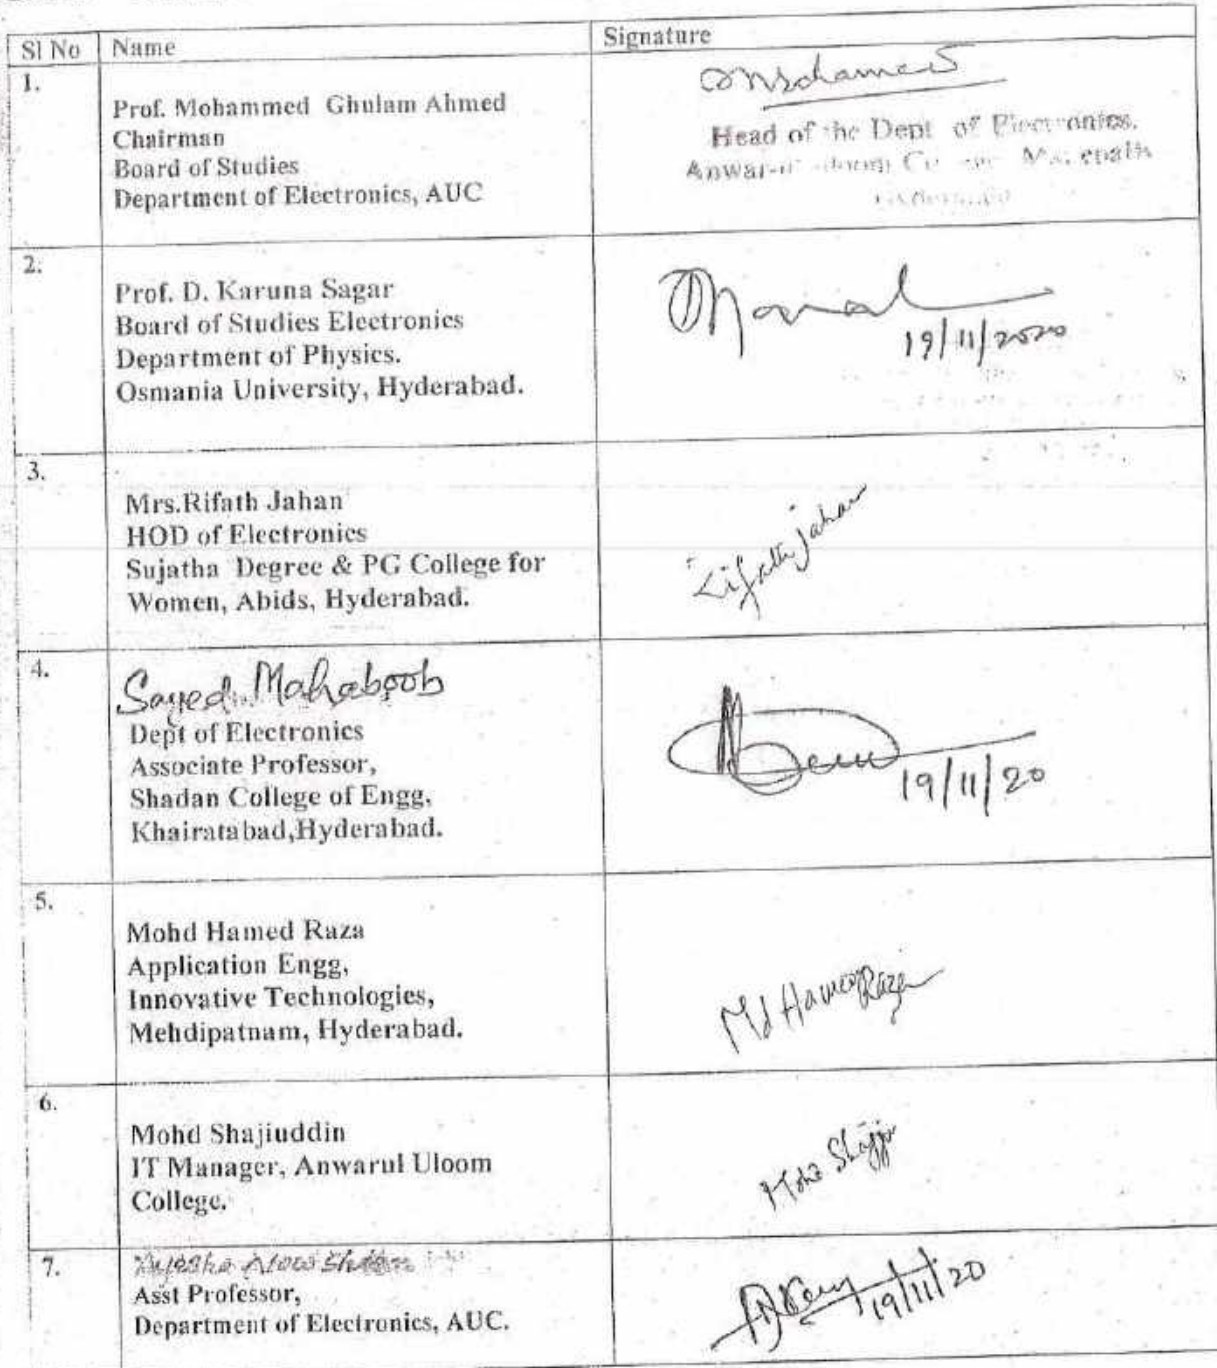 Sl No Name Signature
1.
Prof. Mohammed Ghulam Ahmed
Chairman
Board of Studies
Department of Electronics, AUC
Head of the Dept of Electronics.
2.
Prof. D. Karuna Sagar
Board of Studies Electronics
Department of Physics.
Osmania University, Hyderabad.
19/11/2020
3.
Mrs.Rifath Jahan
HOD of Electronics
Sujatha Degree & PG College for
Women, Abids, Hyderabad.
Rifath Jahan
4.
Sayed Mahaboob
Dept of Electronics
Associate Professor,
Shadan College of Engg,
Khairatabad,Hyderabad.
19/11/20
5.
Mohd Hamed Raza
Application Engg,
Innovative Technologies,
Mehdipatnam, Hyderabad.
Md Hameed Raza
6.
Mohd Shajiuddin
IT Manager, Anwarul Uloom
College.
7.
Asst Professor,
Department of Electronics, AUC.
19/11/20